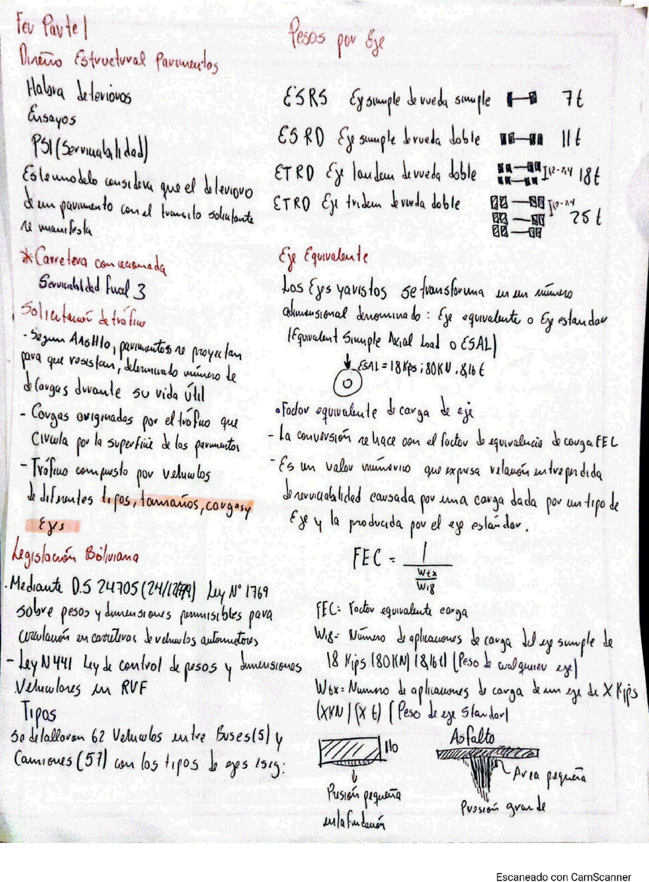 Parte 1
Diseño Estructural Pavimentos
Habra deterioros
Ensayos
PSI (Serviciabilidad)
Este modelo considera que el deterioro
de un pavimento con el transito solicitante
se manifiesta
*Carretera concesionada
Serviciabilidad final 3
Solicitacion de tráfico
- Segun Aashto, pavimentos se proyectan
para que resistan, determinado número de
de cargas durante su vida útil
- Cargas originados por el tráfico que
Circula por la superficie de los pavimentos
- Tráfico compuesto por vehiculos
de diferentes tipos, tamaños, cargas y
Ejes
Legislación Boliviana
- Mediante D.S 24705 Ley N° 1769
sobre pesos y dimensiones permisibles para
circulación en carreteras de vehiculos automotores
- Ley N 441 Ley de control de pesos y dimensiones
Vehiculares en RVF
Tipos
se detallaron 62 Vehiculos entre Buses (5) y
Camiones (57) con los tipos de ejes sig:
Pesos por Eje
ESRS Eje simple de rueda simple 7t
ESRD Eje simple de rueda doble 11t
ETRD Eje tandem de rueda doble 18t
ETRD Eje tridem de rueda doble 25t
Eje Equivalente
Los Ejes ya vistos se transforma en un número
adimensional denominado: Eje equivalente o Eje estandar
(Equivalent Simple Axial Load o ESAL)
ESAL = 18 Kips; 80KN; 8,16 t
• Factor equivalente de carga de eje
- La conversión se hace con el factor de equivalencia de carga FEC
- Es un valor númerico que expresa relación entre perdida
de serviciabilidad causada por una carga dada por un tipo de
Eje y la producida por el eje estándar.
FEC = 1
Wtx
W18
FEC = Factor equivalente carga
W18 = Número de aplicaciones de carga del eje simple de
18 Kips (80KN) (8,16t) (Peso de cualquier eje)
Wtx = Numero de aplicaciones de carga de un eje de X Kips
(XKN) (X t) (Peso de eje Standar)
Ho
Presión pequeña
en la fundación
Asfalto
Area pequeña
Presión grande
Escaneado con CamScanner